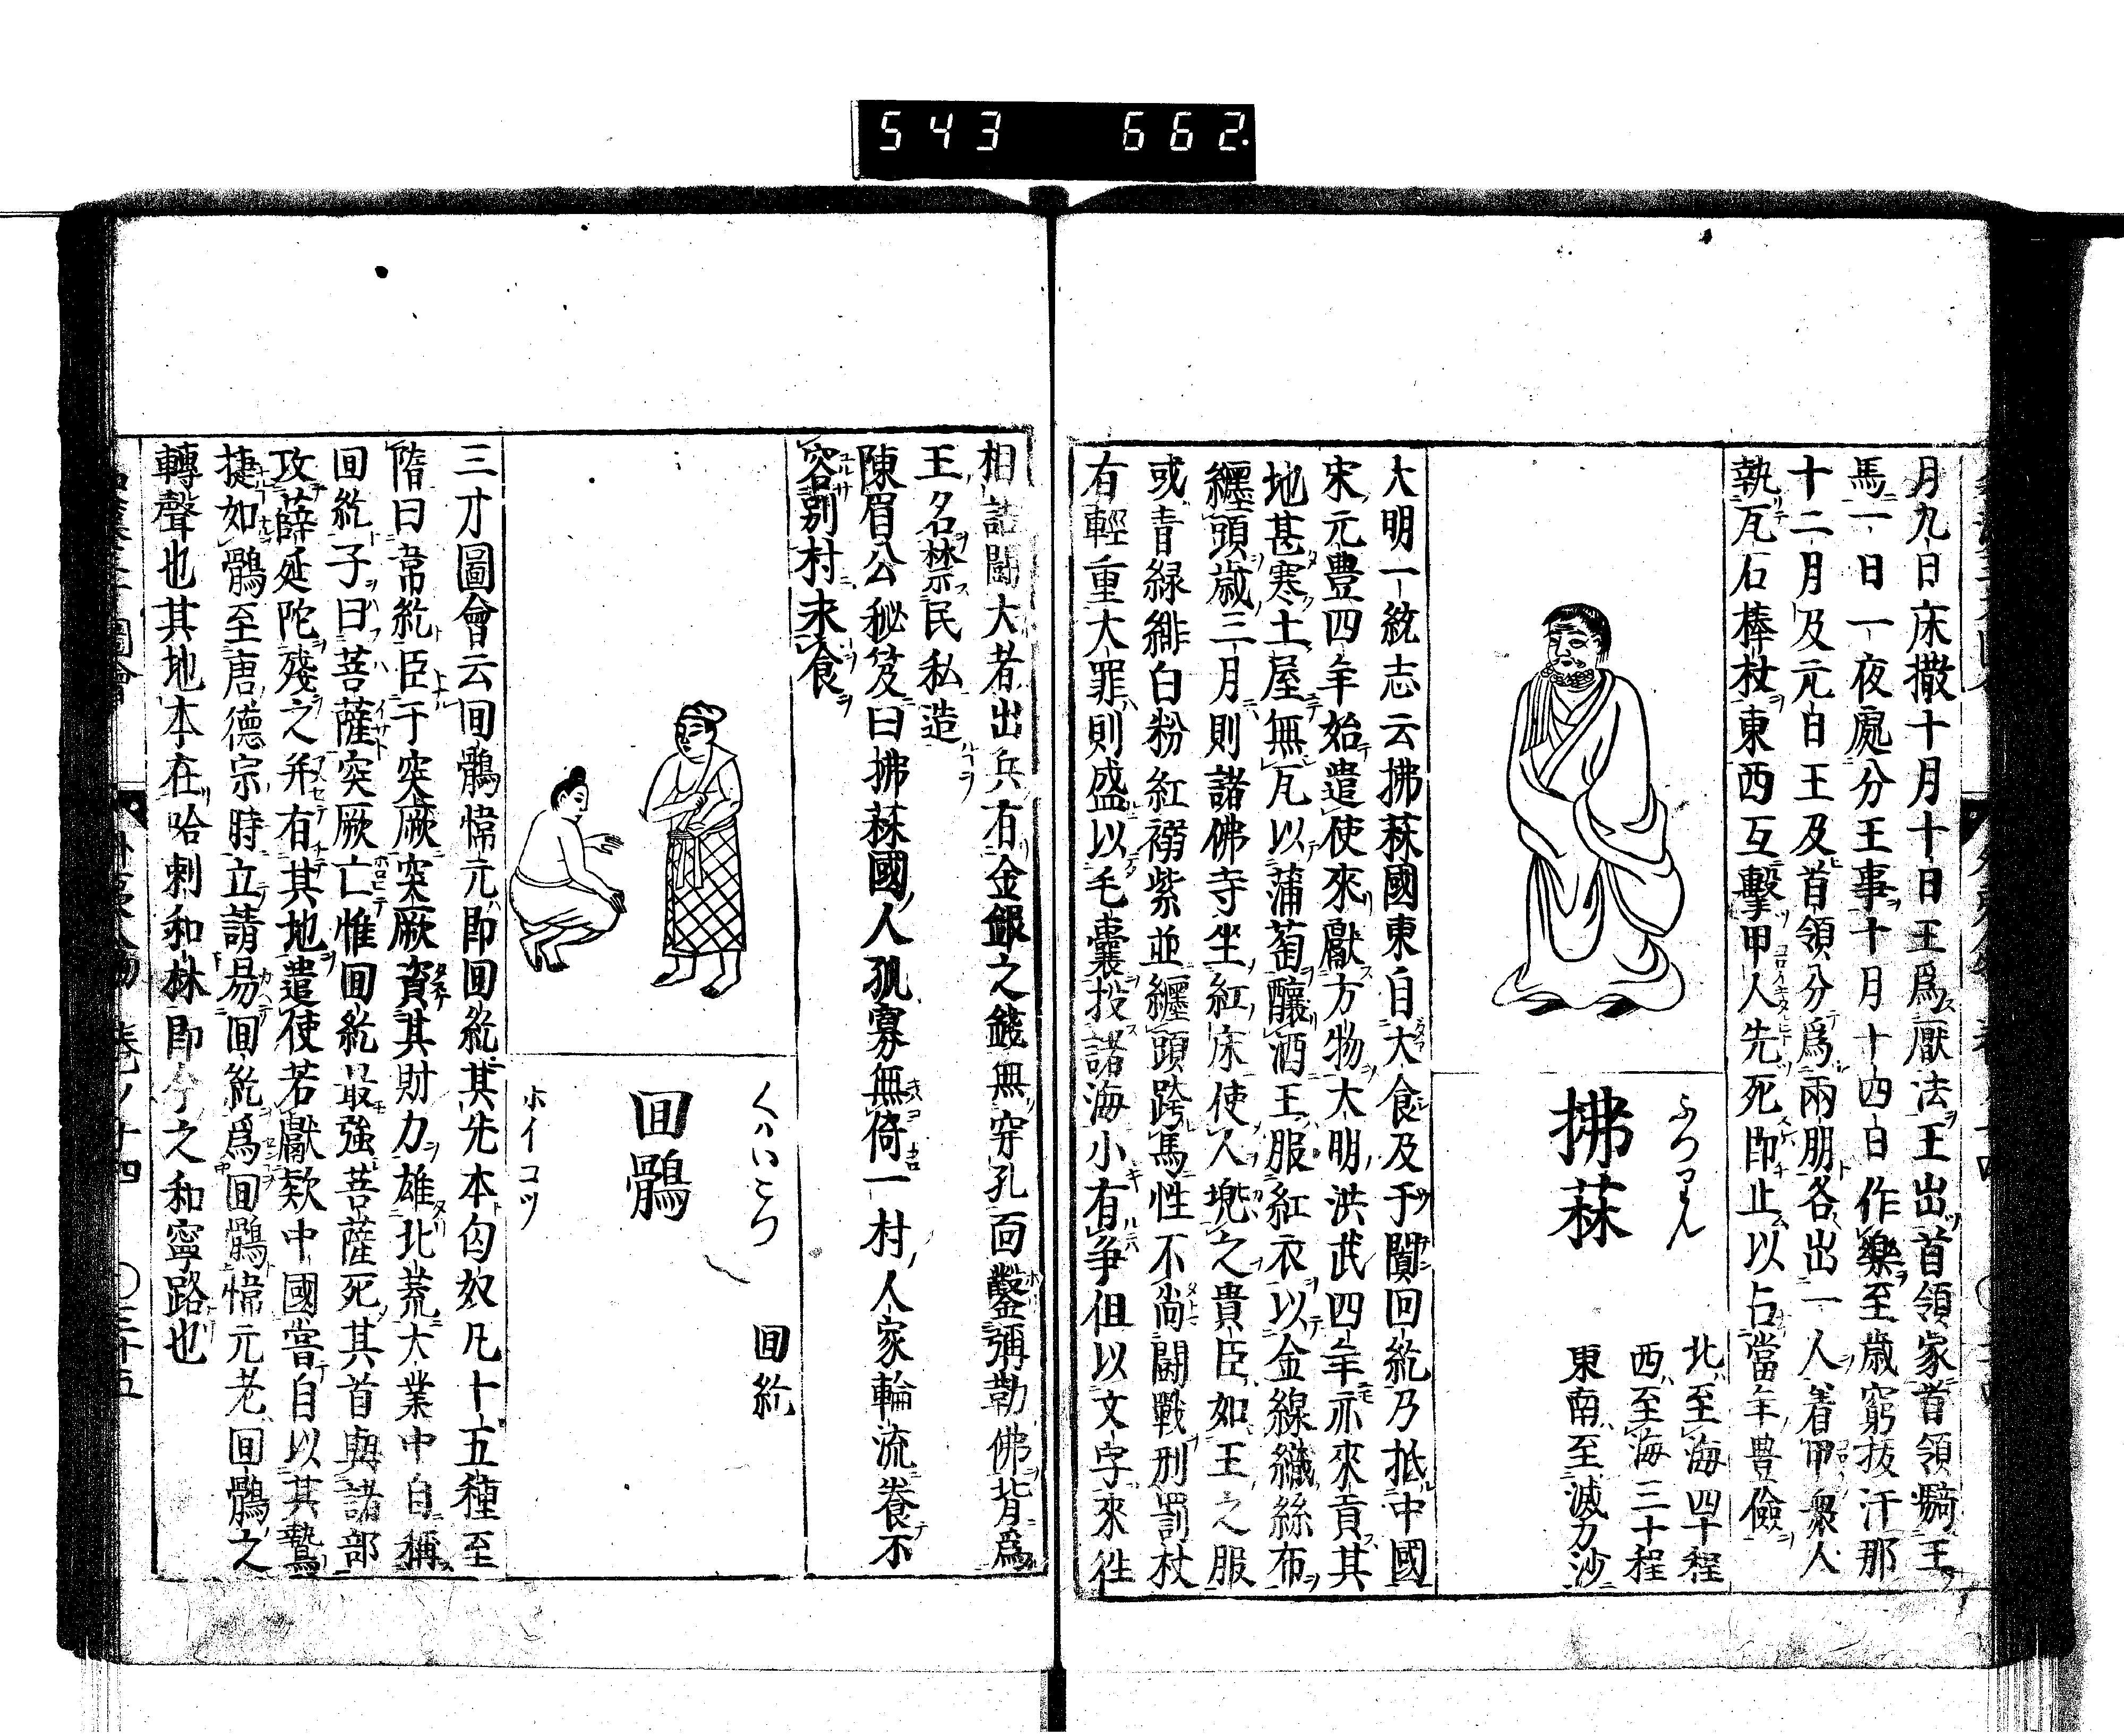 543 662.
月九日床撒十月十日王爲厭法王出首領家首領騎王
馬一日一夜處分王事十月十四日作樂至歳窮抜汗那
十二月及元日王及首領分爲兩朋各出一人着甲衆人
執瓦石棒杖東西互擊甲人先死即止以占當年豊儉
拂菻
北至海四十程
西至海三十程
東南至滅力沙
大明一統志云拂菻國東自大食及于闐回紇乃抵中國
宋元豊四年始遣使來獻方物大明洪武四年亦來貢其
地甚寒土屋無瓦以蒲萄釀酒王服紅衣以金線織絲布
纒頭歳三月則諸佛寺坐紅床使人舁之貴臣如王之服
或青緑緋白粉紅褐紫並纒頭跨馬性不尚闘戰刑罰杖
有輕重大罪則盛以毛囊投諸海小有争但以文字來徃
相詰闘大者出兵有金銀之錢無穿孔面鑿彌勒佛背爲
王名禁民私造
陳眉公秘笈曰拂菻國人孤寡無倚一村人家輪流養不
容別村求食
くはいこつ
回紇
回鶻
ホイコツ
三才圖會云回鶻愇元即回紇其先本匈奴凡十五種至
隋曰韋紇臣于突厥突厥資其財力雄北荒大業中自稱
回紇子曰菩薩突厥亡惟回紇最強菩薩死其首與諸部
攻薛延陀殘之并有其地遣使若獻欵中國嘗自以其鷙
捷如鶻至唐德宗時立請易回紇爲回鶻愇元老回鶻之
轉聲也其地本在哈剌和林即今之和寧路也